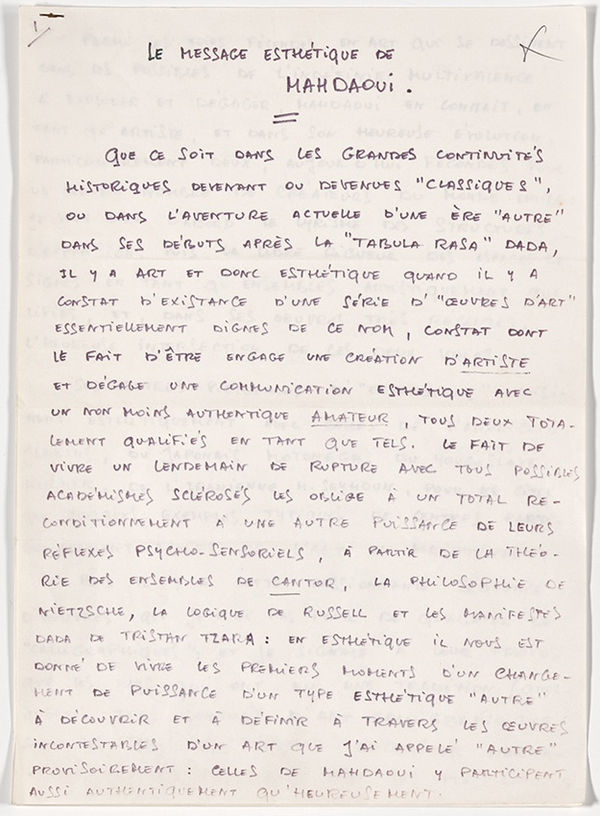 1
LE MESSAGE ESTHÉTIQUE DE
MAHDAOUI.
QUE CE SOIT DANS LES GRANDES CONTINUITÉS
HISTORIQUES DEVENANT OU DEVENUES "CLASSIQUES",
OU DANS L'AVENTURE ACTUELLE D'UNE ÈRE "AUTRE"
DANS SES DÉBUTS APRÈS LA "TABULA RASA" DADA,
IL Y A ART ET DONC ESTHÉTIQUE QUAND IL Y A
CONSTAT D'EXISTANCE D'UNE SÉRIE D'"ŒUVRES D'ART"
ESSENTIELLEMENT DIGNES DE CE NOM, CONSTAT DONT
LE FAIT D'ÊTRE ENGAGE UNE CRÉATION D'ARTISTE
ET DÉGAGE UNE COMMUNICATION ESTHÉTIQUE AVEC
UN NON MOINS AUTHENTIQUE AMATEUR, TOUS DEUX TOTA-
LEMENT QUALIFIÉS EN TANT QUE TELS. LE FAIT DE
VIVRE UN LENDEMAIN DE RUPTURE AVEC TOUS POSSIBLES
ACADÉMISMES SCLÉROSÉS LES OBLIGE À UN TOTAL RE-
CONDITIONNEMENT À UNE AUTRE PUISSANCE DE LEURS
RÉFLEXES PSYCHO-SENSORIELS, À PARTIR DE LA THÉO-
RIE DES ENSEMBLES DE CANTOR, LA PHILOSOPHIE DE
NIETZSCHE, LA LOGIQUE DE RUSSELL ET LES MANIFESTES
DADA DE TRISTAN TZARA : EN ESTHÉTIQUE IL NOUS EST
DONNÉ DE VIVRE LES PREMIERS MOMENTS D'UN CHANGE-
MENT DE PUISSANCE D'UN TYPE ESTHÉTIQUE "AUTRE"
À DÉCOUVRIR ET À DÉFINIR À TRAVERS LES ŒUVRES
INCONTESTABLES D'UN ART QUE J'AI APPELÉ "AUTRE"
PROVISOIREMENT : CELLES DE MAHDAOUI Y PARTICIPENT
AUSSI AUTHENTIQUEMENT QU'HEUREUSEMENT.